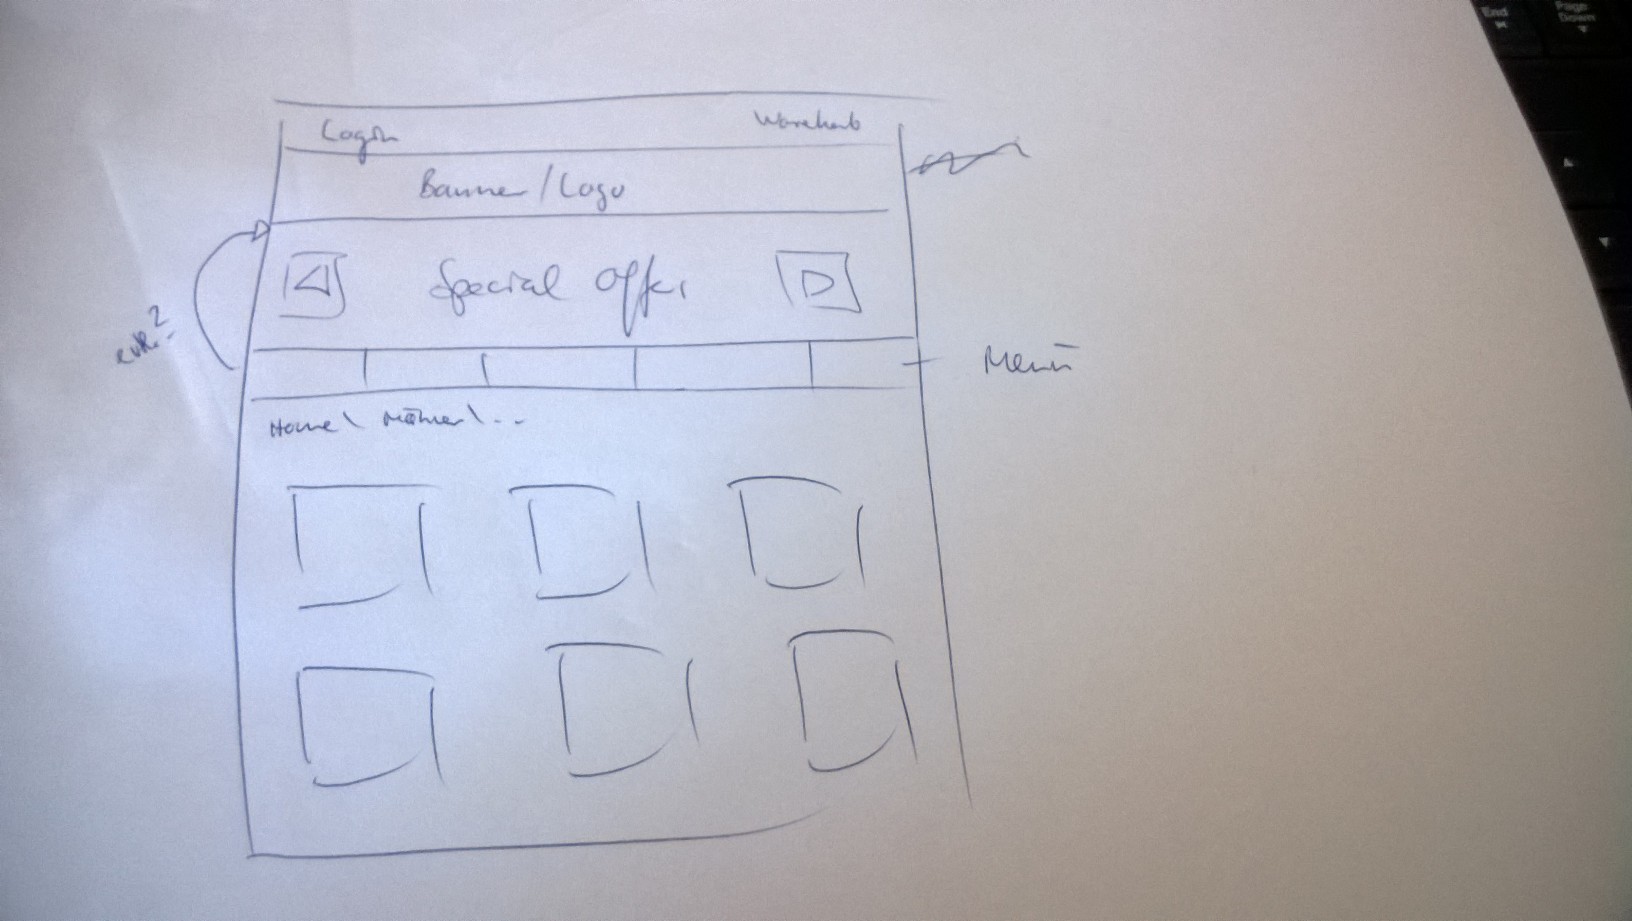 Login
Warenkorb
Banner/Logo
Special Offer
Menü
Home\ Männer\...
End
Page Down